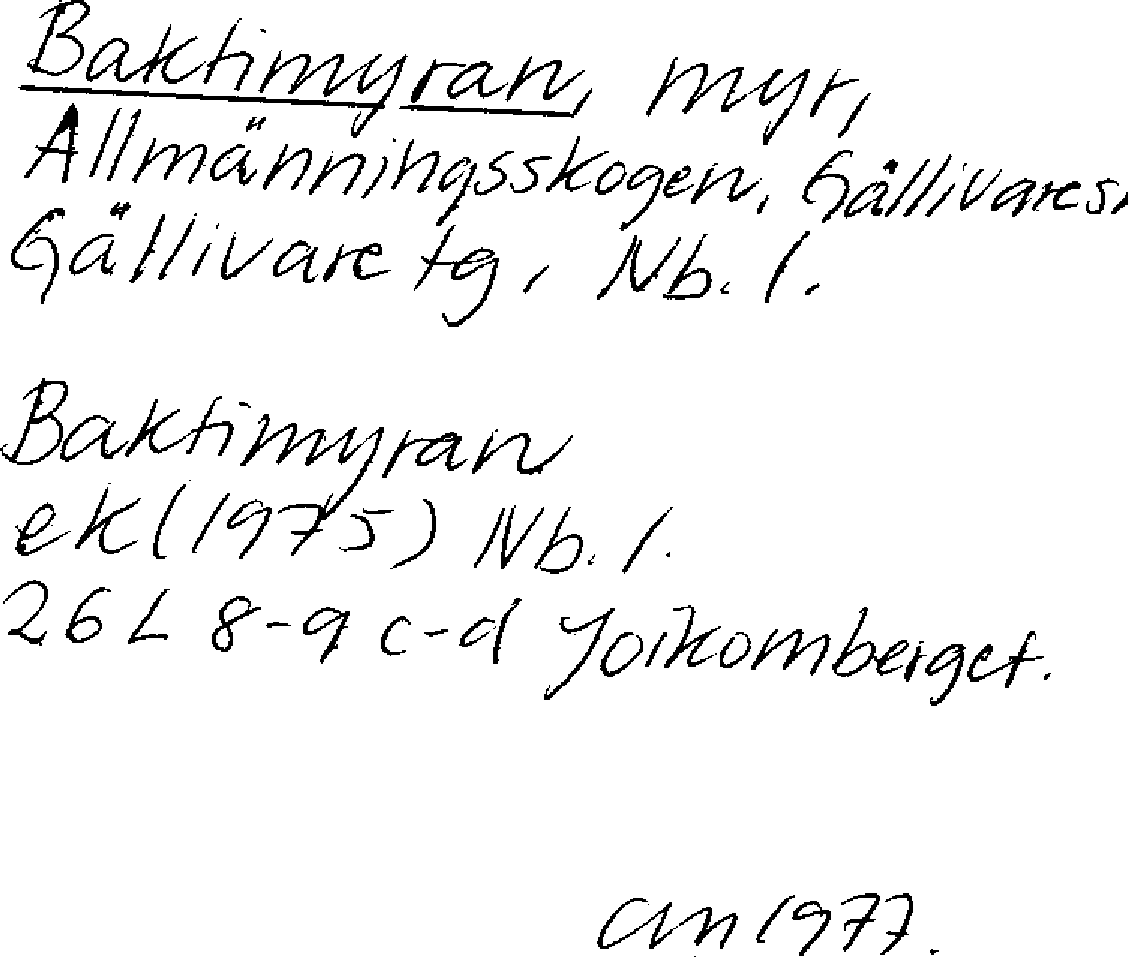 Baktimyran, myr,
Allmänningsskogen, Gällivare sn
Gällivare tg, Nb. l.
Baktimyran
ek (1975) Nb. l.
26 L 8-9 c-d Joikomberget.
CM 1977.